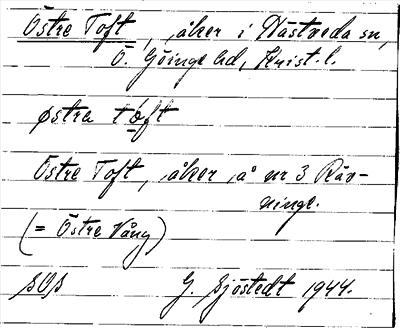 Östre Toft, åker i Hästveda sn,
Ö. Göinge hd, Krist. l.
østrə tóft
Östre Toft, åker å nr 3 Röv-
ninge.
(= Östre Vång)
SOS G. Sjöstedt 1944.